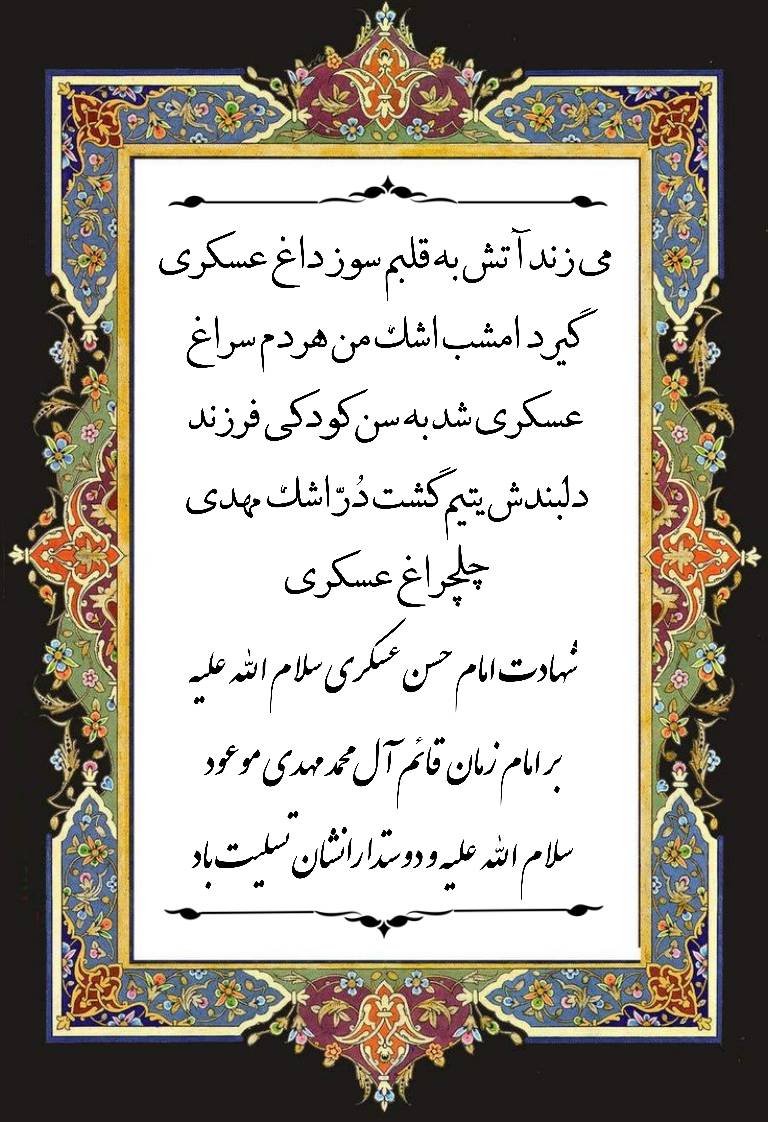 می زند آتش به قلبم سوز داغ عسکری
گیرد امشب اشک من هر دم سراغ
عسکری شد به سن کودکی فرزند
دلبندش یتیم گشت دُرّ اشک مهدی
چلچراغ عسکری
شهادت امام حسن عسکری سلام الله علیه
بر امام زمان قائم آل محمد مهدی موعود
سلام الله علیه و دوستدارانشان تسلیت باد